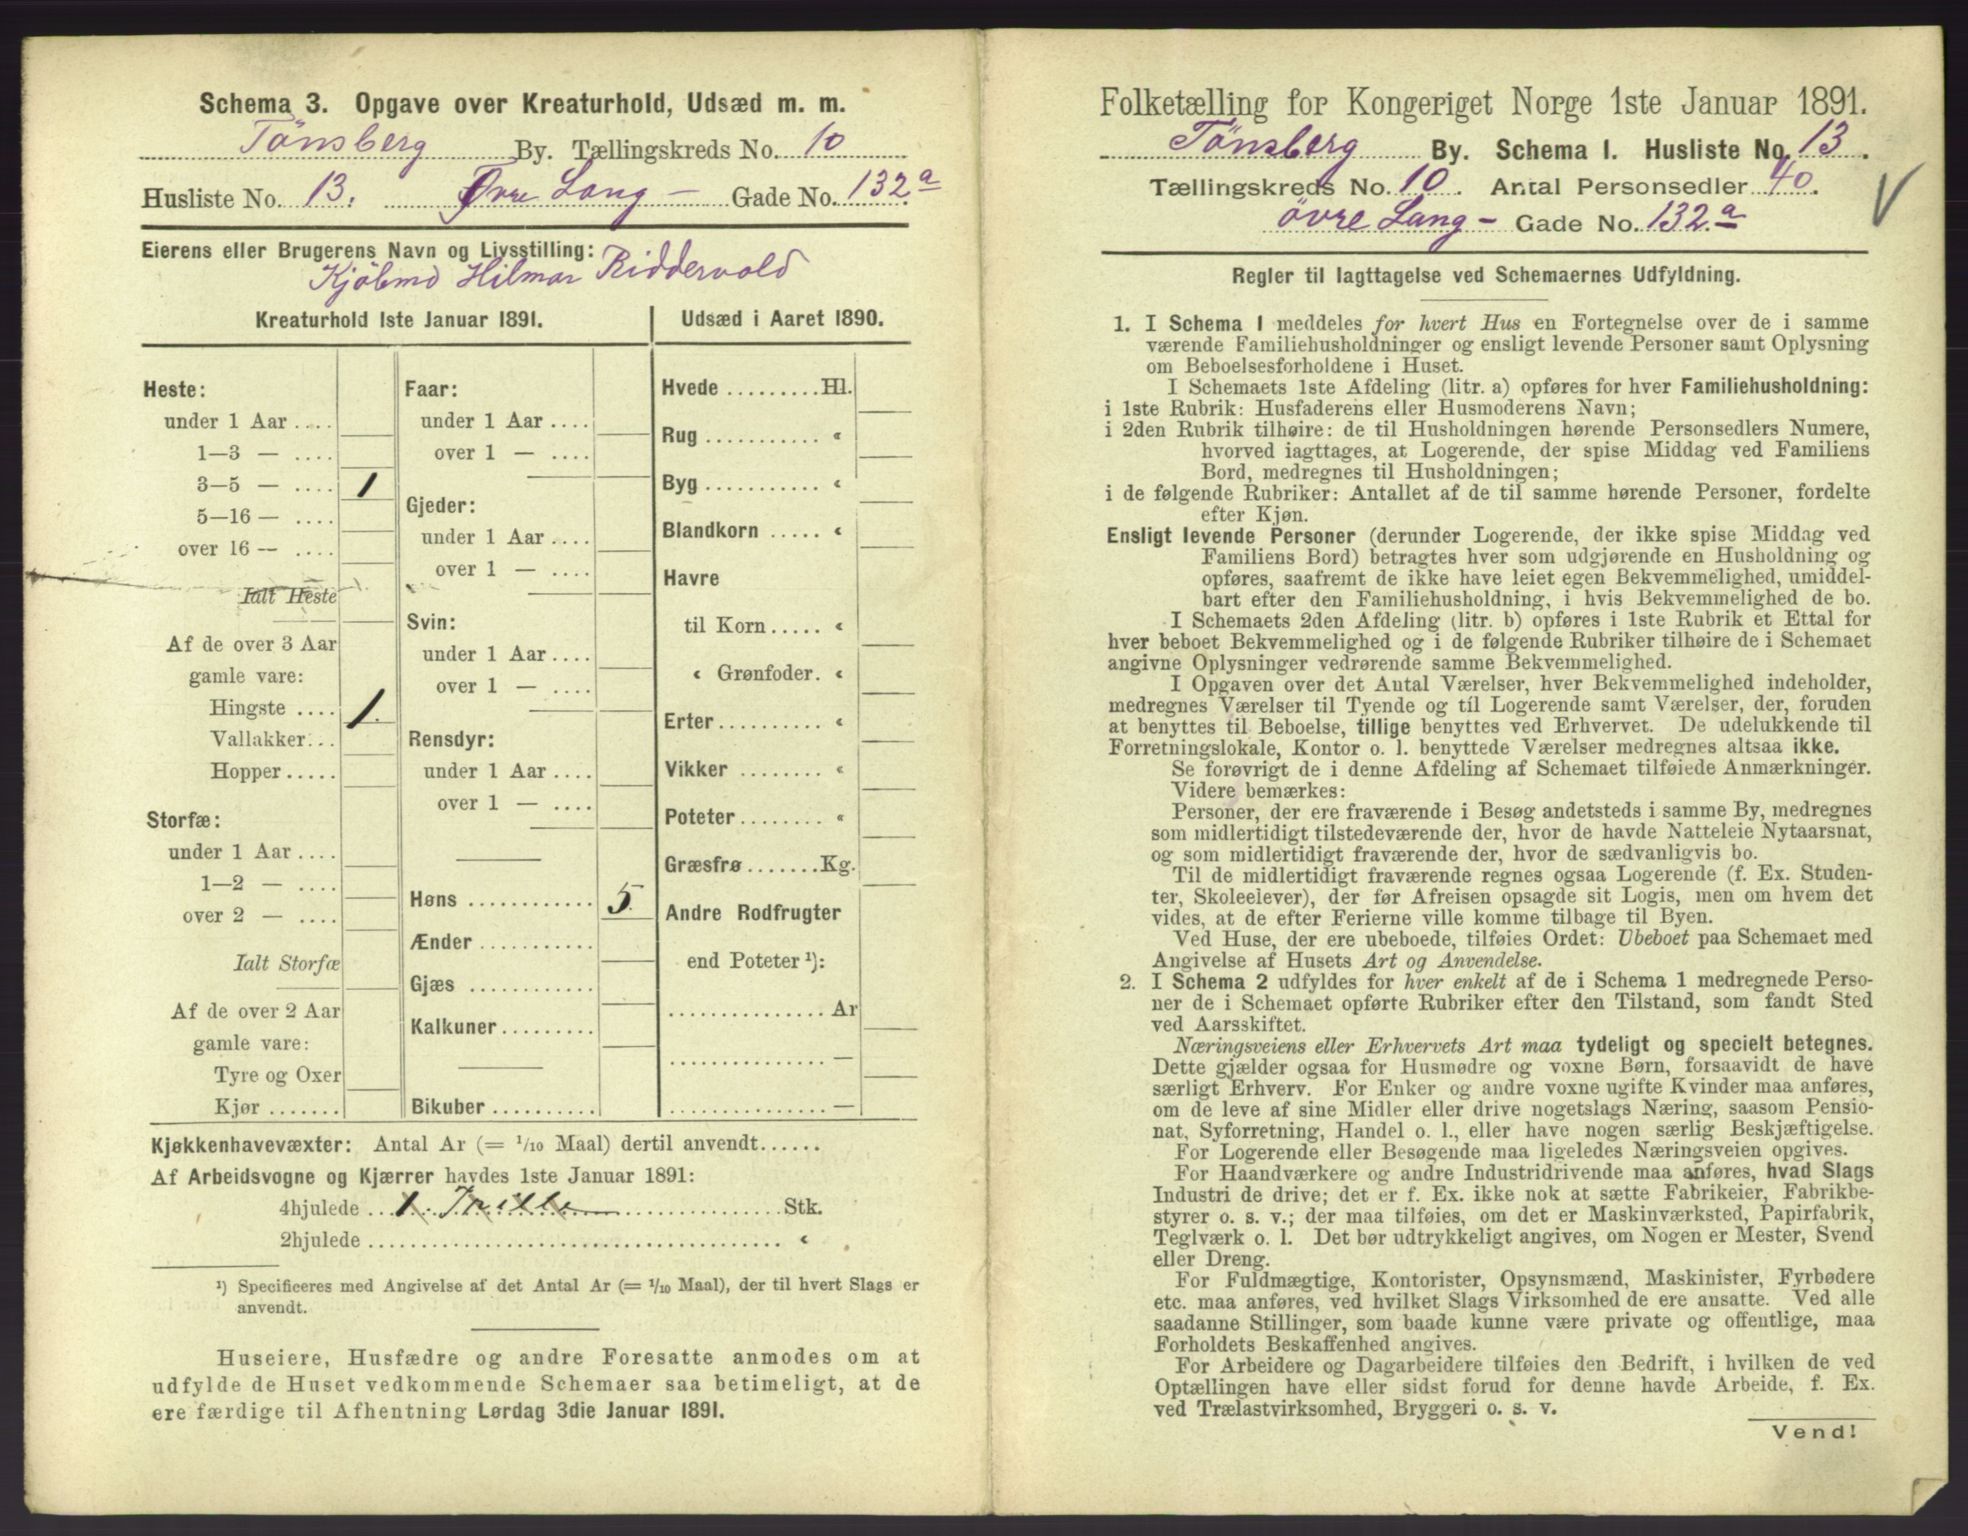 Schema 3. Opgave over Kreaturhold, Udsæd m. m.
Tönsberg By. Tællingskreds No. 10
Husliste No. 13. Øvre Lang - Gade No. 132.a
Eierens eller Brugerens Navn og Livsstilling:
Kjöbmd Hilmar Riddervold
Kreaturhold 1ste Januar 1891.
Heste:
under 1 Aar ....
1—3 — ....
3—5 — .... 1
5—16 — ....
over 16 — ....
Ialt Heste
Af de over 3 Aar
gamle vare:
Hingste .... 1.
Vallakker...
Hopper.....
Storfæ:
under 1 Aar ....
1—2 — ....
over 2 — ....
Ialt Storfæ
Af de over 2 Aar
gamle vare:
Tyre og Oxer
Kjør .......
Faar:
under 1 Aar ....
over 1 — ....
Gjeder:
under 1 Aar ....
over 1 — ....
Svin:
under 1 Aar ....
over 1 — ....
Rensdyr:
under 1 Aar ....
over 1 — ....
Høns ............ 5.
Ænder ...........
Gjæs ............
Kalkuner.........
Bikuber ..........
Udsæd i Aaret 1890.
Hvede .........Hl.
Rug ........... "
Byg ........... "
Blandkorn ..... "
Havre
til Korn..... "
" Grønfoder. "
Erter.......... "
Vikker ........ "
Poteter........ "
Græsfrø.......Kg.
Andre Rodfrugter
end Poteter ¹):
............... Ar
............... —
............... —
Kjøkkenhavevæxter: Antal Ar (= 1/10 Maal) dertil anvendt......
Af Arbeidsvogne og Kjærrer havdes 1ste Januar 1891:
4hjulede ... 1. Trille ............... Stk.
2hjulede ....................................... "
¹) Specificeres med Angivelse af det Antal Ar (= 1/10 Maal), der til hvert Slags er
anvendt.
Huseiere, Husfædre og andre Foresatte anmodes om at
udfylde de Huset vedkommende Schemaer saa betimeligt, at de
ere færdige til Afhentning Lørdag 3die Januar 1891.
Folketælling for Kongeriget Norge 1ste Januar 1891.
Tönsberg By. Schema I. Husliste No. 13.
Tællingskreds No. 10. Antal Personsedler 40.
övre Lang - Gade No. 132.a
Regler til Iagttagelse ved Schemaernes Udfyldning.
1. I Schema I meddeles for hvert Hus en Fortegnelse over de i samme
værende Familiehusholdninger og ensligt levende Personer samt Oplysning
om Beboelsesforholdene i Huset.
I Schemaets 1ste Afdeling (litr. a) opføres for hver Familiehusholdning:
i 1ste Rubrik: Husfaderens eller Husmoderens Navn;
i 2den Rubrik tilhøire: de til Husholdningen hørende Personsedlers Numere,
hvorved iagttages, at Logerende, der spise Middag ved Familiens
Bord, medregnes til Husholdningen;
i de følgende Rubriker: Antallet af de til samme hørende Personer, fordelte
efter Kjøn.
Ensligt levende Personer (derunder Logerende, der ikke spise Middag ved
Familiens Bord) betragtes hver som udgjørende en Husholdning og
opføres, saafremt de ikke have leiet egen Bekvemmelighed, umiddel-
bart efter den Familiehusholdning, i hvis Bekvemmelighed de bo.
I Schemaets 2den Afdeling (litr. b) opføres i 1ste Rubrik et Ettal for
hver beboet Bekvemmelighed og i de følgende Rubriker tilhøire de i Schemaet
angivne Oplysninger vedrørende samme Bekvemmelighed.
I Opgaven over det Antal Værelser, hver Bekvemmelighed indeholder,
medregnes Værelser til Tyende og til Logerende samt Værelser, der, foruden
at benyttes til Beboelse, tillige benyttes ved Erhvervet. De udelukkende til
Forretningslokale, Kontor o. l. benyttede Værelser medregnes altsaa ikke.
Se forøvrigt de i denne Afdeling af Schemaet tilføiede Anmærkninger.
Videre bemærkes:
Personer, der ere fraværende i Besøg andetsteds i samme By, medregnes
som midlertidigt tilstedeværende der, hvor de havde Natteleie Nytaarsnat,
og som midlertidigt fraværende der, hvor de sædvanligvis bo.
Til de midlertidigt fraværende regnes ogsaa Logerende (f. Ex. Studen-
ter, Skoleelever), der før Afreisen opsagde sit Logis, men om hvem det
vides, at de efter Ferierne ville komme tilbage til Byen.
Ved Huse, der ere ubeboede, tilføies Ordet: Ubeboet paa Schemaet med
Angivelse af Husets Art og Anvendelse.
2. I Schema 2 udfyldes for hver enkelt af de i Schema 1 medregnede Perso-
ner de i Schemaet opførte Rubriker efter den Tilstand, som fandt Sted
ved Aarsskiftet.
Næringsveiens eller Erhvervets Art maa tydeligt og specielt betegnes.
Dette gjælder ogsaa for Husmødre og voxne Børn, forsaavidt de have
særligt Erhverv. For Enker og andre voxne ugifte Kvinder maa anføres,
om de leve af sine Midler eller drive nogetslags Næring, saasom Pensio-
nat, Syforretning, Handel o. l., eller have nogen særlig Beskjæftigelse.
For Logerende eller Besøgende maa ligeledes Næringsveien opgives.
For Haandværkere og andre Industridrivende maa anføres, hvad Slags
Industri de drive; det er f. Ex. ikke nok at sætte Fabrikeier, Fabrikbe-
styrer o. s. v.; der maa tilføies, om det er Maskinværksted, Papirfabrik,
Teglværk o. l. Det bør udtrykkeligt angives, om Nogen er Mester, Svend
eller Dreng.
For Fuldmægtige, Kontorister, Opsynsmænd, Maskinister, Fyrbødere
etc. maa anføres, ved hvilket Slags Virksomhed de ere ansatte. Ved alle
saadanne Stillinger, som baade kunne være private og offentlige, maa
Forholdets Beskaffenhed angives.
For Arbeidere og Dagarbeidere tilføies den Bedrift, i hvilken de ved
Optællingen have eller sidst forud for denne havde Arbeide, f. Ex.
ved Trælastvirksomhed, Bryggeri o. s. v.
Vend!